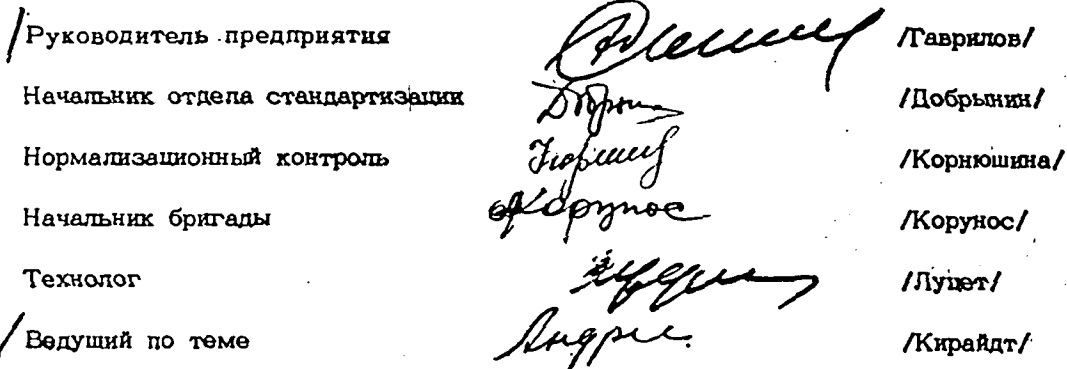 Руководитель предприятия /Гаврилов/
Начальник отдела стандартизации Добрын /Добрынин/
Нормализационный контроль /Корнюшина/
Начальник бригады Корунос /Корунос/
Технолог /Луцет/
Ведущий по теме Андре /Кирайдт/